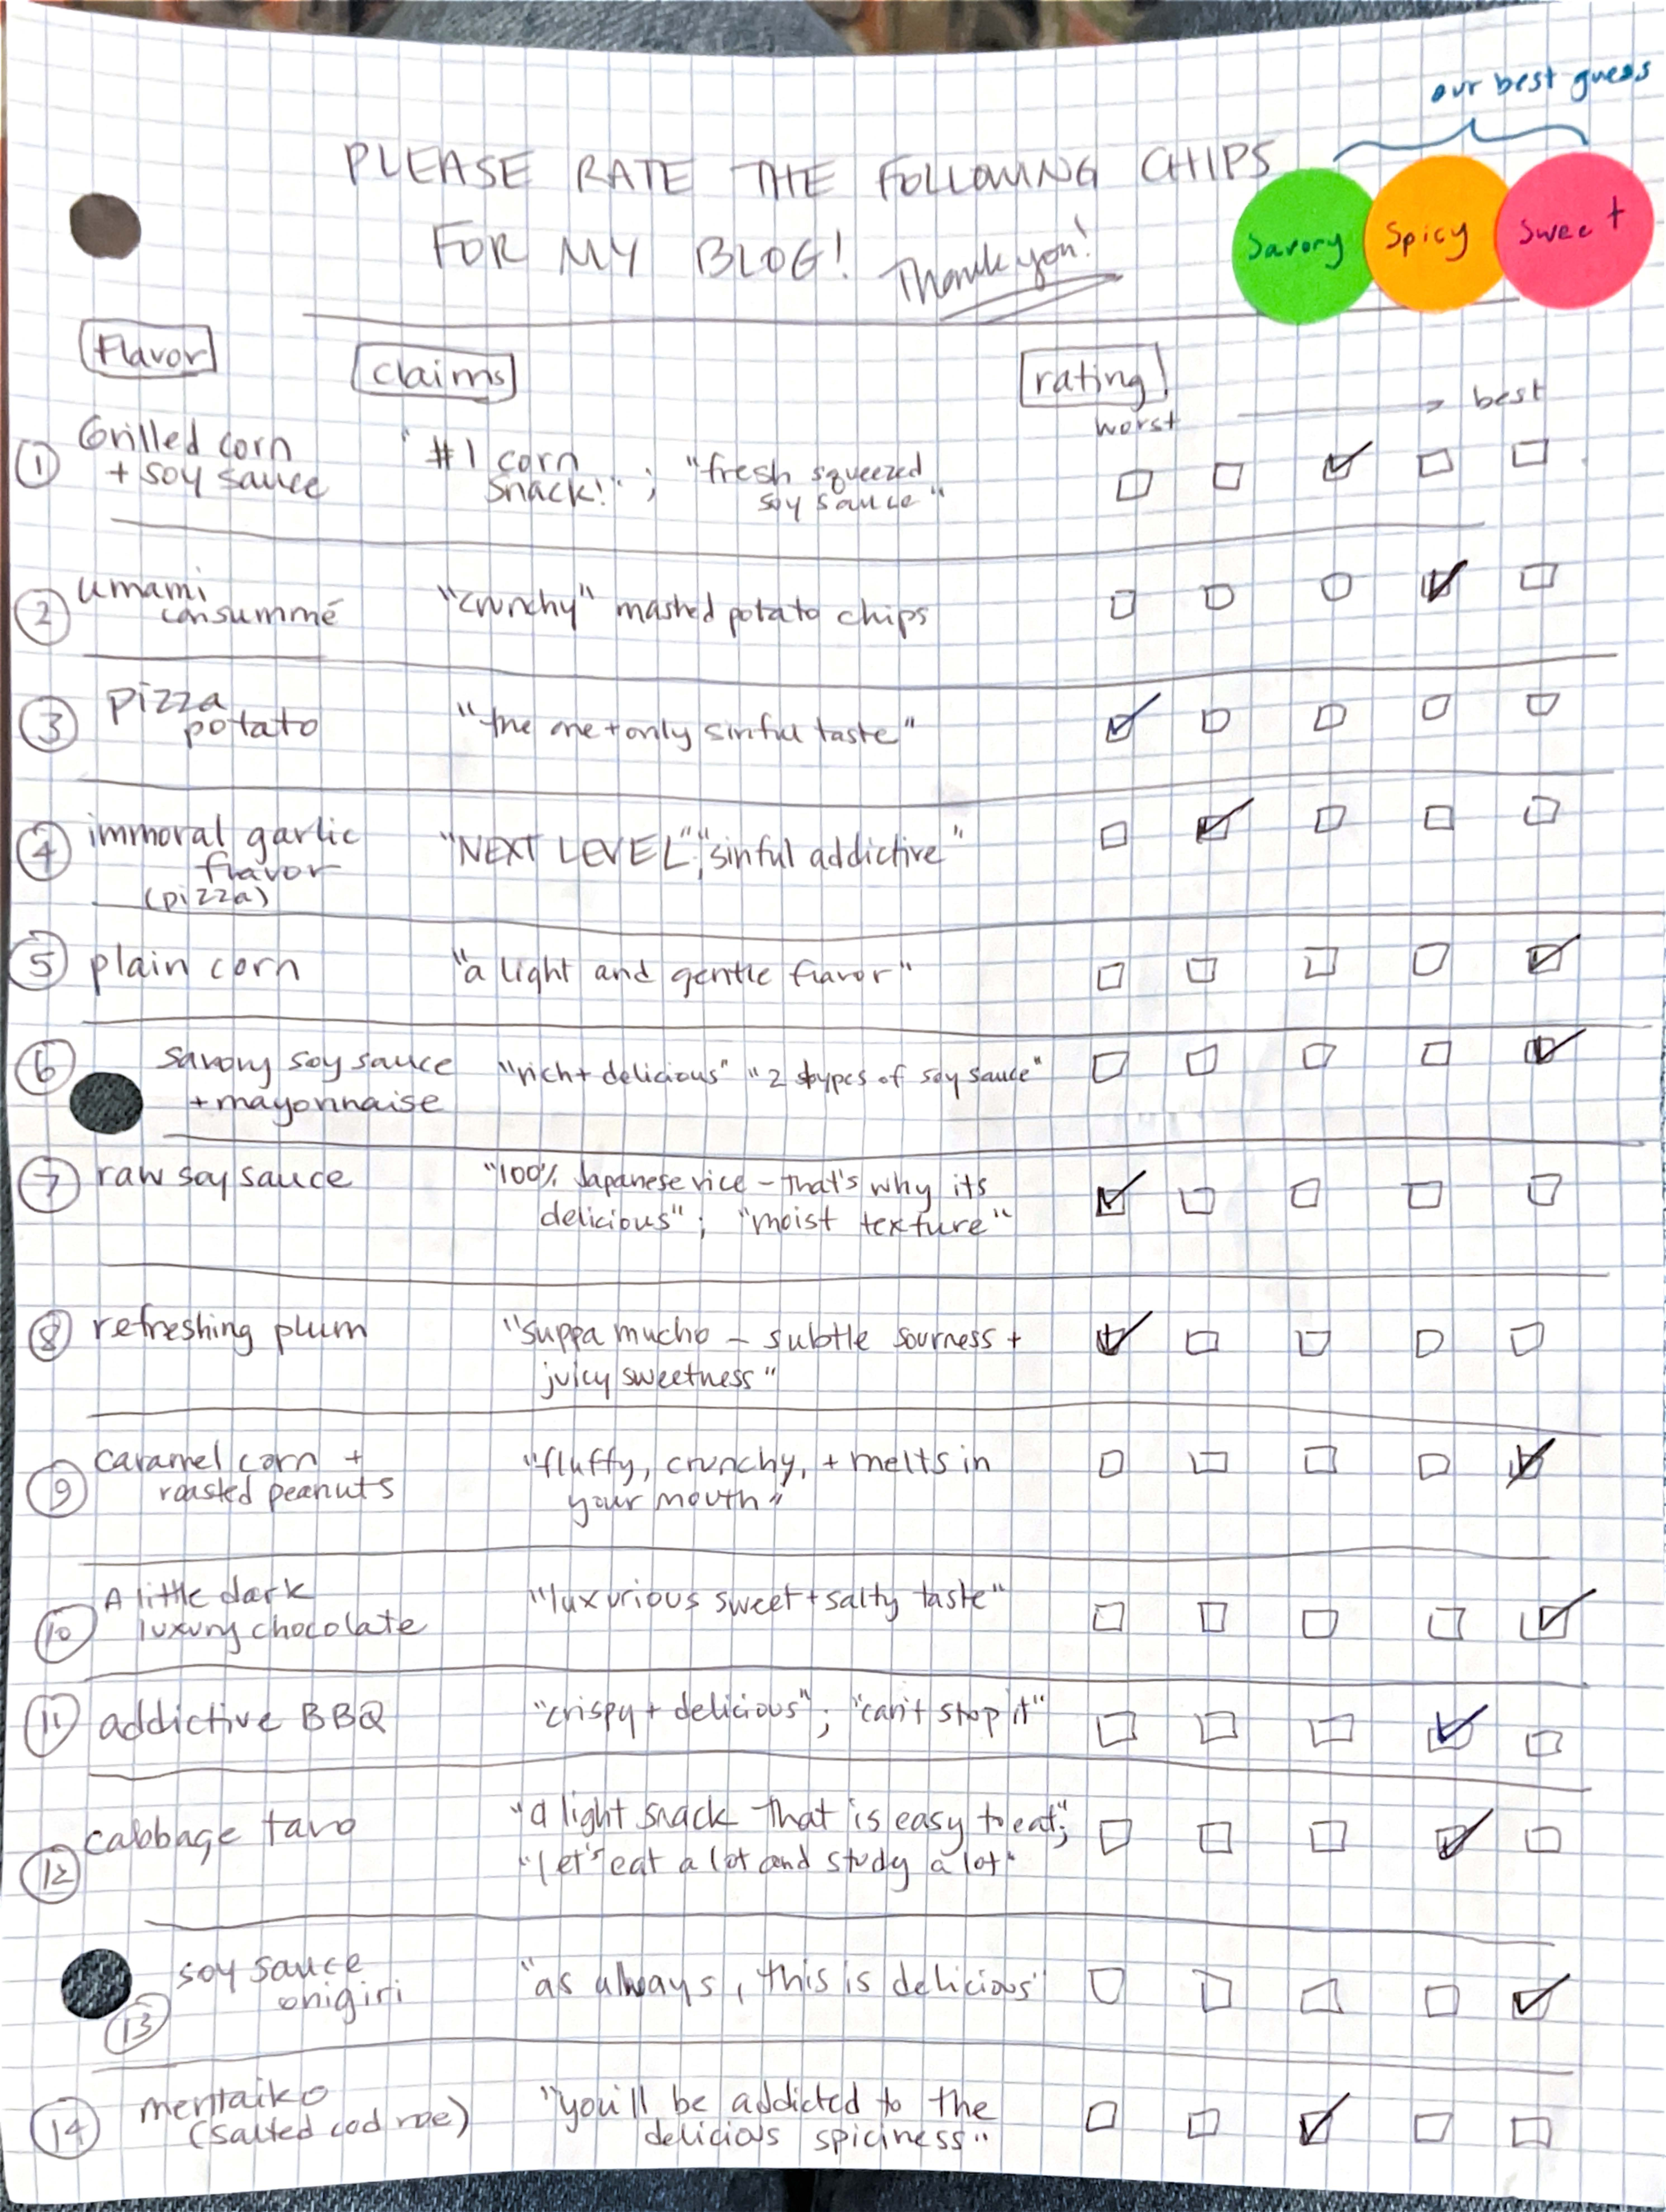 our best guess
PLEASE RATE THE FOLLOWING CHIPS
FOR MY BLOG! Thank you!
Savory Spicy Sweet
Flavor claims rating
worst → best
① Grilled corn
+ soy sauce
"#1 corn
snack!" ; "fresh squeezed
soy sauce"
② umami
consummé
"crunchy" mashed potato chips
③ pizza
potato
"the one + only sinful taste"
④ immoral garlic
flavor
(pizza)
"NEXT LEVEL"; "sinful addictive"
⑤ plain corn "a light and gentle flavor"
⑥ savory soy sauce
+ mayonnaise
"rich + delicious" "2 types of soy sauce"
⑦ raw soy sauce
"100% Japanese rice – that's why its
delicious"; "moist texture"
⑧ refreshing plum
"suppa mucho – subtle sourness +
juicy sweetness"
⑨ caramel corn +
roasted peanuts
"fluffy, crunchy, + melts in
your mouth"
⑩ A little dark
luxury chocolate
"luxurious sweet + salty taste"
⑪ addictive BBQ "crispy + delicious"; "can't stop it"
⑫ cabbage taro
"a light snack that is easy to eat";
"let's eat a lot and study a lot"
⑬ soy sauce
onigiri
"as always, this is delicious"
⑭ mentaiko
(salted cod roe)
"you'll be addicted to the
delicious spiciness"